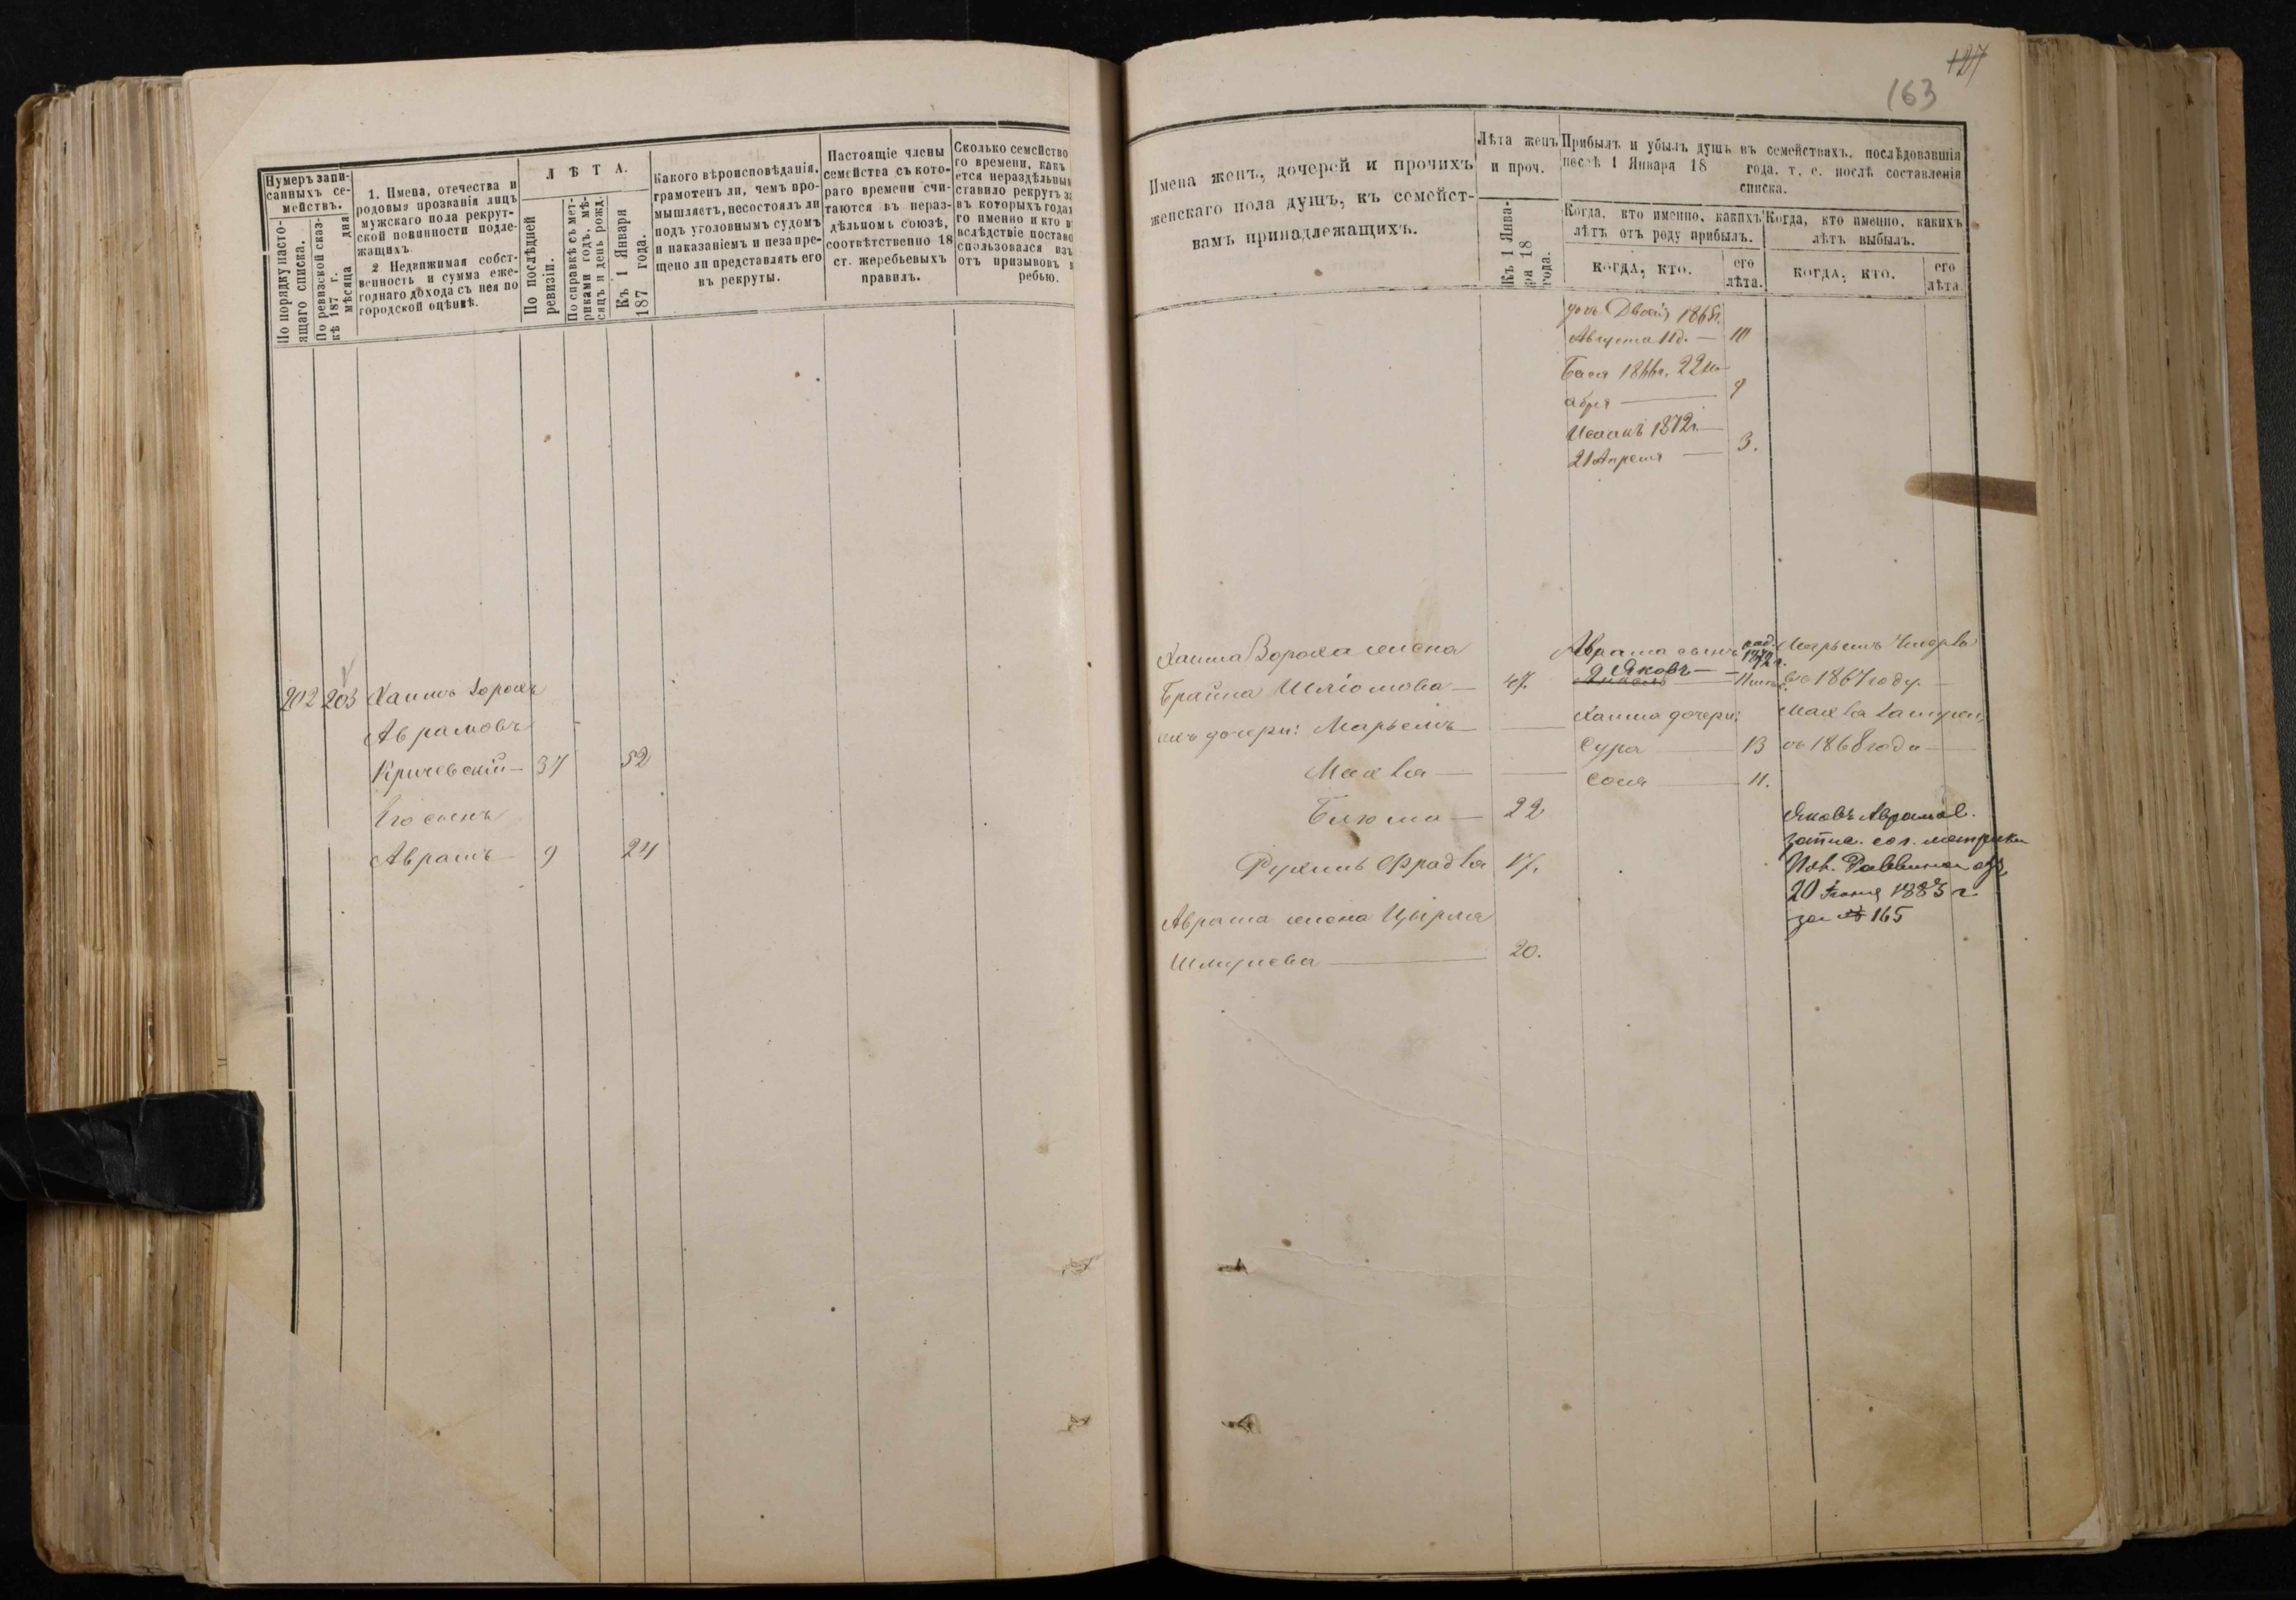 Нумеръ запи-
санныхъ се-
мействъ.
По порядку насто-
ящаго списка.
По ревизской сказ-
кѣ 187 г. дня
мѣсяца
1. Имена, отечества и
родовыя прозванія лицъ
мужскаго пола рекрут-
ской повинности подле-
жащихъ.
2 Недвижимая собст-
венность и сумма еже-
годнаго дохода съ нея по
городской оцѣнкѣ.
ЛѢТА.
По послѣдней
ревизіи.
По справкѣ съ мет-
риками годъ, мѣ-
сяцъ и день рожд.
Къ 1 Января
187 года.
Какого вѣроисповѣданія,
грамотенъ ли, чемъ про-
мышляетъ, несостоялъ ли
подъ уголовнымъ судомъ
и наказаніемъ и незапре-
щено ли представлять его
въ рекруты.
Настоящіе члены
семейства съ кото-
раго времени счи-
таются въ нераз-
дѣльномъ союзѣ,
соотвѣтственно 18
ст. жеребьевыхъ
правилъ.
Сколько семейство
го времени, какъ
ется нераздѣльным
ставило рекрутъ за
въ которыхъ годах
го именно и кто в
вслѣдствіе постав
спользовался изъ
отъ призывовъ
ребью.
202 203 Хаимъ Зорахъ
Аврамовъ
Кричевскій 37 52
Его сынъ
Аврамъ 9 24
127
163
Имена женъ, дочерей и прочихъ
женскаго пола душъ, къ семейст-
вамъ принадлежащихъ.
Лѣта женъ
и проч.
Къ 1 Янва-
ря 18
года.
Прибыль и убыль душъ въ семействахъ, послѣдовавшія
послѣ 1 Января 18 года, т. е. послѣ составленія
списка.
Когда, кто именно, какихъ
лѣтъ отъ роду прибылъ.
Когда, кто именно, какихъ
лѣтъ выбылъ.
КОГДА, КТО.
его
лѣта.
КОГДА, КТО.
его
лѣта
дочь Двоsя 1865г.
Августа 11д. — 10
Бася 1866г. 22 но
ября — 9
Исаакъ 1872г.
21 Апреля — 3.
Хаима Зораха жена
Брайна Шліомова — 47.
ихъ дочери: Марьемъ
Махля
Блюма — 22
Рухимъ Фрадля 17.
Аврама жена Цырля
Шмуева 20.
Аврама сынъ род. 1872 г.
Яковъ
Хаима дочери:
Сура — 13
Соня — 11.
Марьемъ умерла
въ 1867 году.
Махля
въ 1868 году
Яковъ Аврамов.
запис. сог. метрики
Раввина
20 Іюня 1885 г.
за № 165